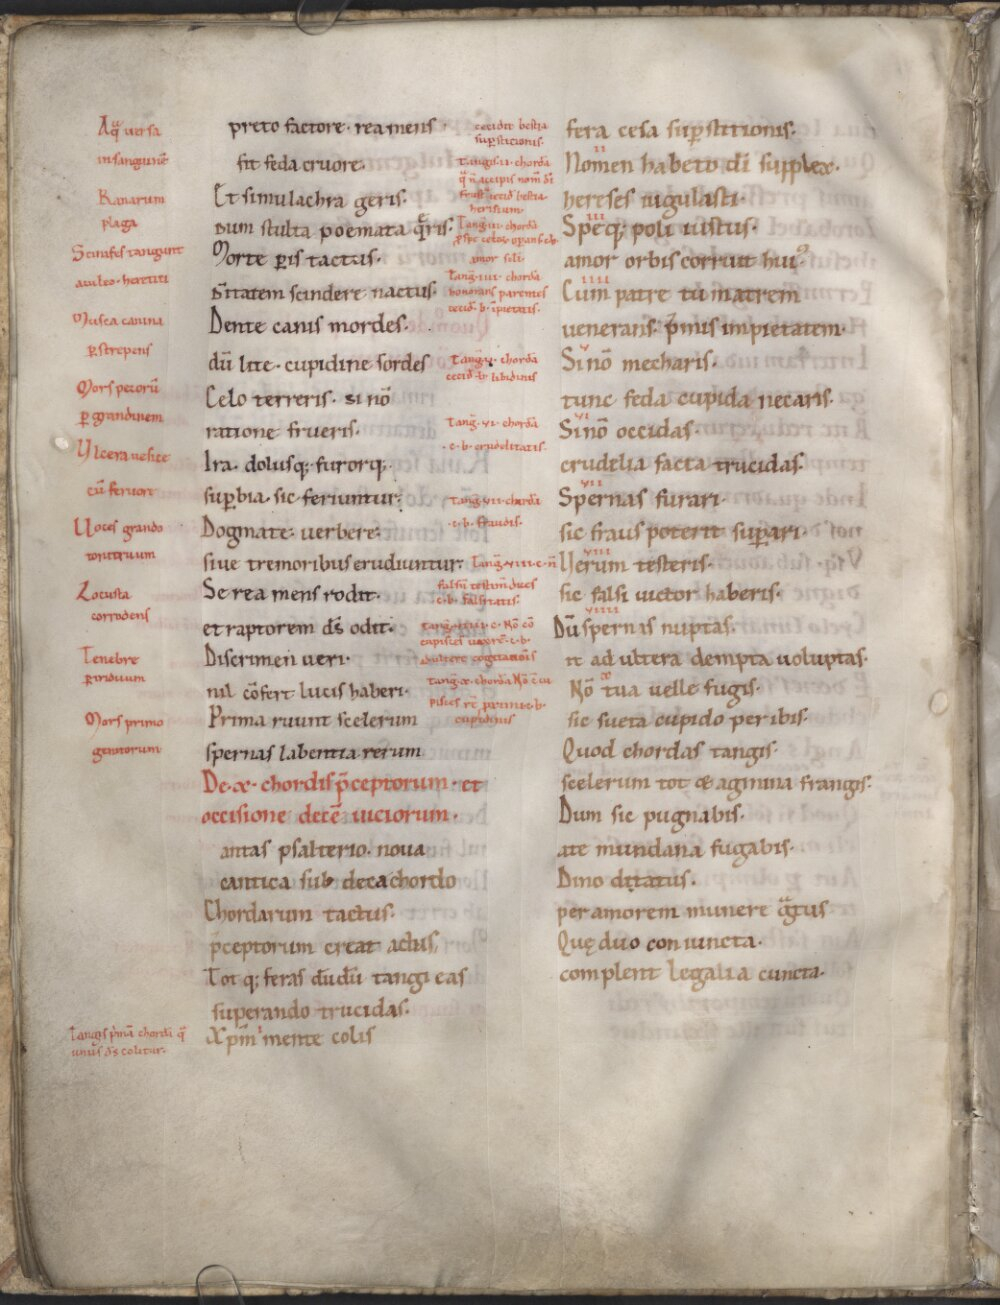 Aqͣ uersa
in sanguinē
Ranarum
plaga
Scinifes tangunt
aculeo heretici
Musca canina
ꝑstrepens
Mors pecorū
ꝑ grandinem
Vlcera uesice
cū feruore
Uoces grando
tonitruum
Locusta
corrodens
Tenebre
ꝑ triduum
Mors primo
genitorum
Tangis pͥmā chordā qͣ
unus dꝰs colitur.
preto factore· rea mens
fit feda cruore·
Et simulachra geris·
Dum stulta poemata qͣris·
Morte ꝑis tactus·
ūitatem scindere nactus·
Dente canis mordes·
dū lite· cupidine sordes
Celo terreris· si nō
ratione frueris·
Ira· dolusq; furorq;
suꝑbia· sic feriuntur;
Dogmate· uerbere·
siue tremoribus erudiuntur·
Se rea mens rodit·
et raptorem dꝰs odit·
Discrimen ueri·
nil cōfert lucis haberi·
Prima ruunt scelerum
spernas labentia rerum
De·x· chordis p̄ceptorum· et
occisione decē uiciorum·
antas psalterio· noua
cantica sub decachordo
Chordarum tactus·
p̄ceptorum creat actus,
Tot q; feras dūdū tangi eas
superando trucidas·
X pͥm mente colis
cecidit bestia
suꝑsticionis·
Tangis·ii· chordā
qͣ n̄ accipis nom̄ dī
amor sc̄li·
Tanḡ·iiii· chordā
honorans parentes
cecid̄· b· īpietatis·
Tanḡ·v· chordā
cecid̄·b· libidinis
Tanḡ·vi· chordā
·c·b· crudelitatis·
Tanḡ·vii· chordā
·c·b· fraudis·
Tanḡ·viii·c·n̄
falsū testim̄ dices
c·b· falsitatis·
Tanḡ·viiii·c· Nō cō
Tanḡ·x· chordā
cupidinis
fera cesa suꝑstitionis·
Nomen habeto dī supplex·
hereses iugulasti·
Speq; poli iustus·
amor orbis corruit huiꝰ·
Cum patre tū matrem
uenerans· p̄mis impietatem·
Si nō mecharis·
tunc feda cupida necaris·
Si nō occidas
crudelia facta trucidas·
Spernas furari·
sic fraus poterit suꝑari·
Uerum testeris·
sic falsi uictor haberis·
Dū spernis nuptas·
it ad ultera dempta uoluptas·
Nō tua uelle fugis·
sic sueta cupido peribis·
Quod chordas tangis·
scelerum tot & agmina frangis·
Dum sic pugnabis·
a te mundana fugabis·
Dino ditatus·
per amorem munere gͣtus
Quę duo coniuncta·
complent legalia cuncta·